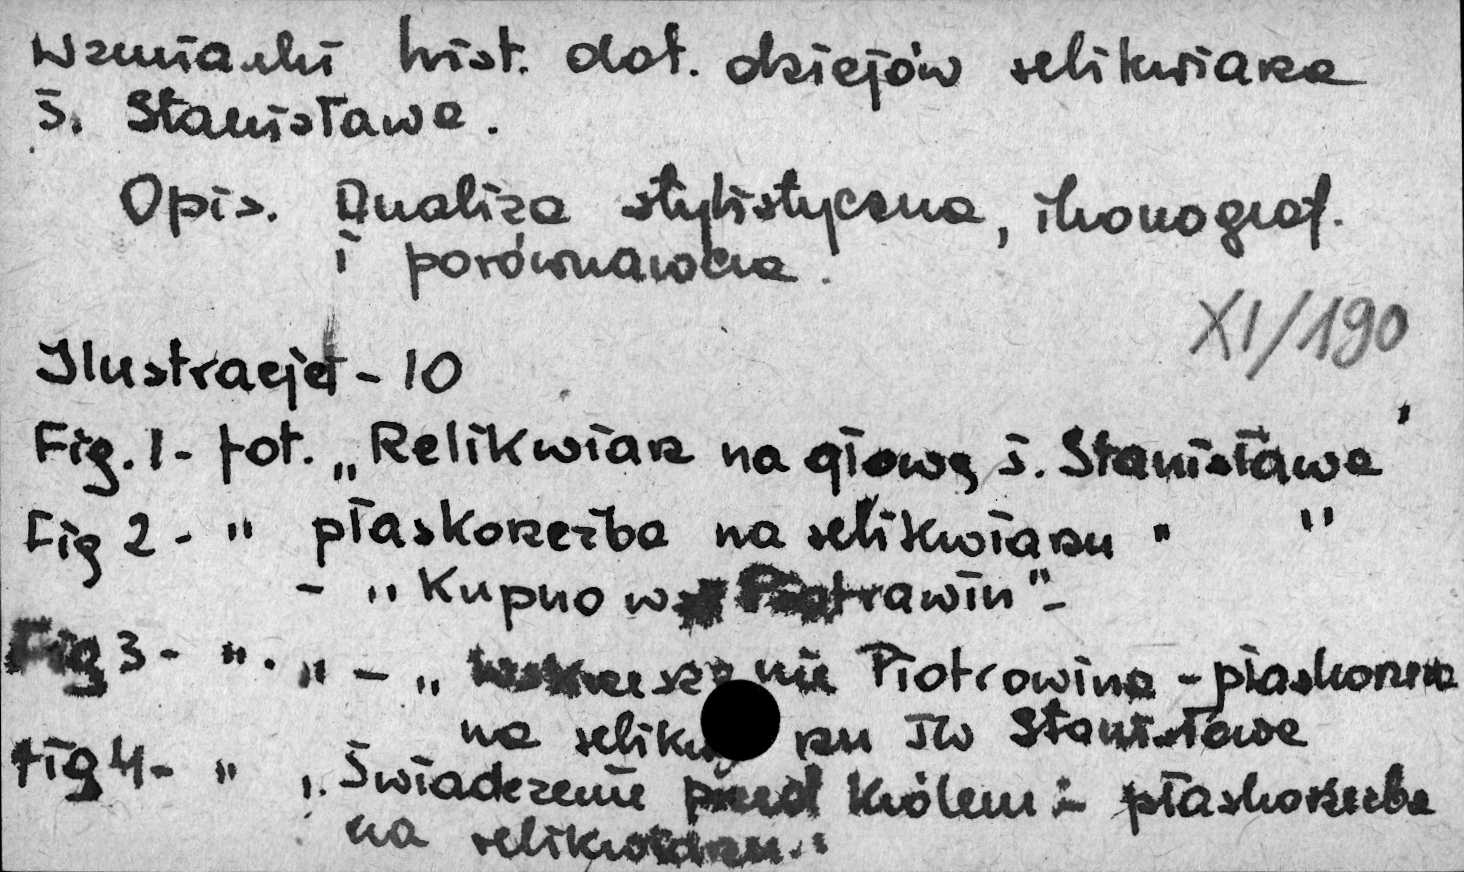 Wzmianki hist. dot. dziejów relikwiarza
ś. Stanisława.
Opis. Analiza stylistyczna, ikonograf.
i porównawcza.
XI/190
Ilustracje - 10
Fig. 1 - fot. „Relikwiarz na głowę ś. Stanisława"
Fig 2 - " płaskorzeźba na relikwiarzu " "
- „Kupno wsi Piotrawin" -
Fig 3 - ". „ - „ wskrzeszenie Piotrowina - płaskorzeźba
na relikwiarzu św Stanisława
Fig 4 - " „Świadczenie przed Królem - płaskorzeźba
na relikwiarzu."